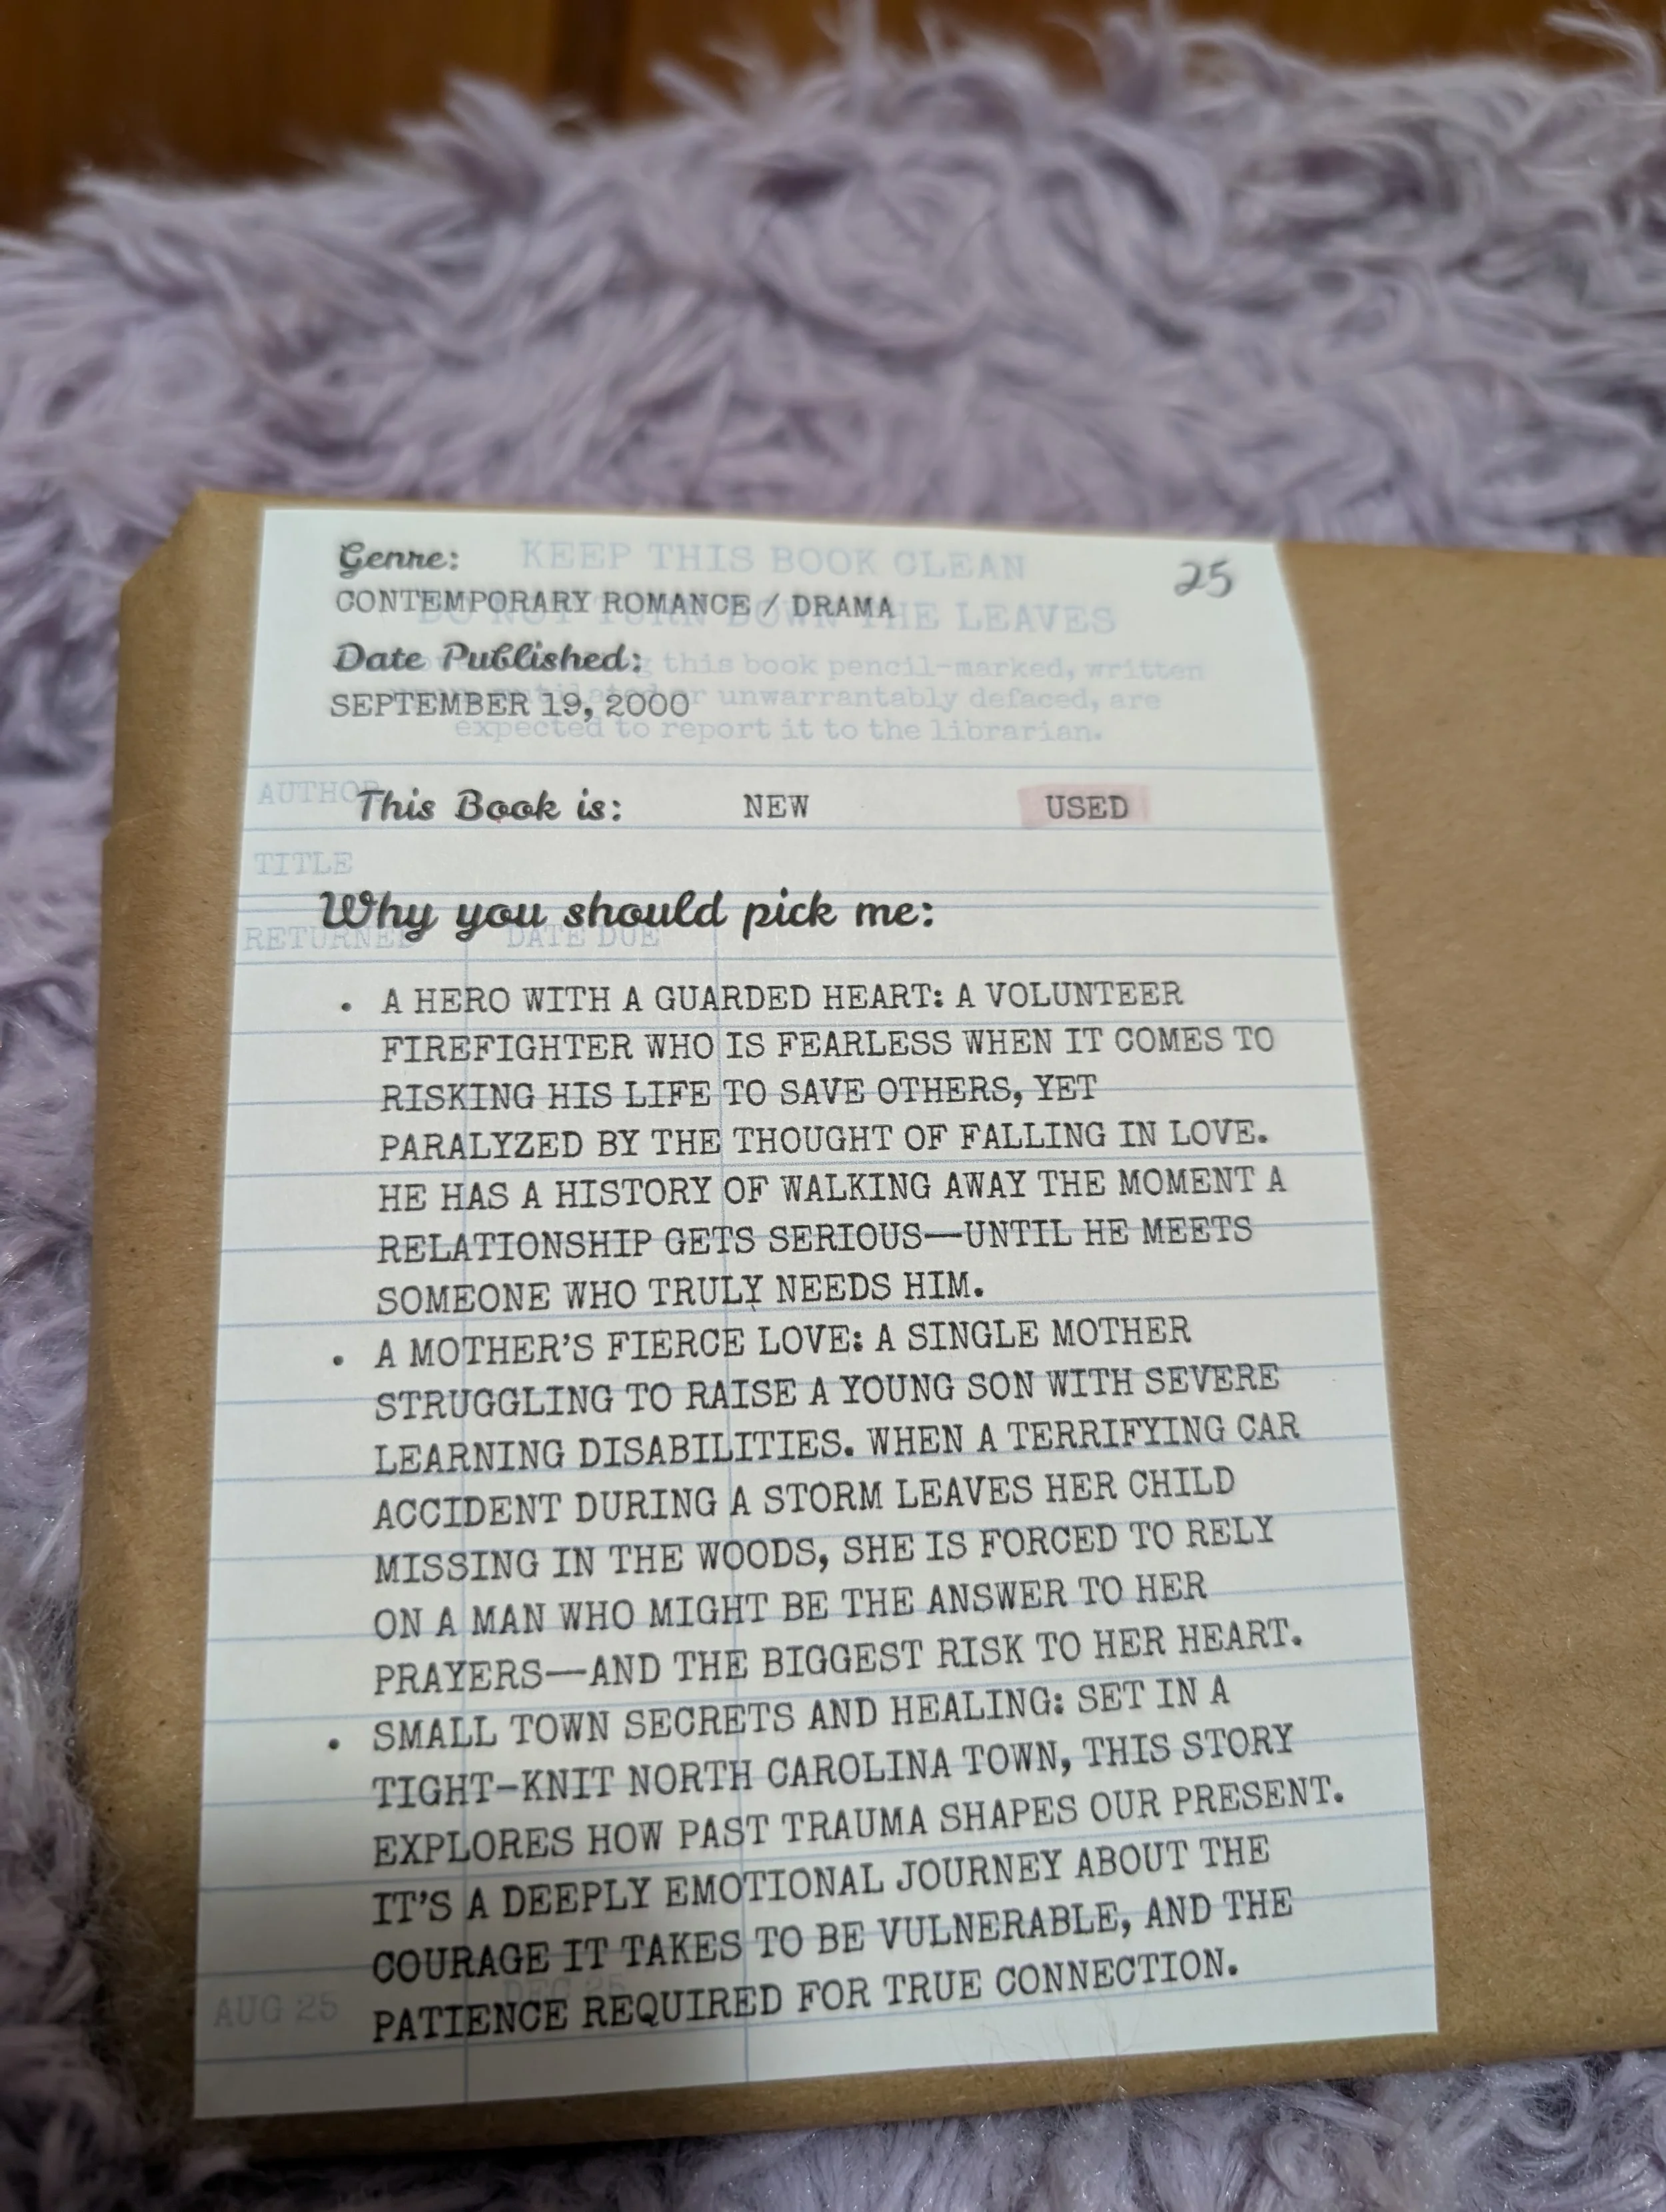 Genre:
KEEP THIS BOOK CLEAN
25
CONTEMPORARY ROMANCE / DRAMA
DO NOT TURN DOWN THE LEAVES
Date Published:
this book pencil-marked, written
SEPTEMBER 19, 2000
or unwarrantably defaced, are
expected to report it to the librarian.
AUTHOR
This Book is: NEW USED
TITLE
Why you should pick me:
RETURNED DATE DUE
• A HERO WITH A GUARDED HEART: A VOLUNTEER
FIREFIGHTER WHO IS FEARLESS WHEN IT COMES TO
RISKING HIS LIFE TO SAVE OTHERS, YET
PARALYZED BY THE THOUGHT OF FALLING IN LOVE.
HE HAS A HISTORY OF WALKING AWAY THE MOMENT A
RELATIONSHIP GETS SERIOUS—UNTIL HE MEETS
SOMEONE WHO TRULY NEEDS HIM.
• A MOTHER'S FIERCE LOVE: A SINGLE MOTHER
STRUGGLING TO RAISE A YOUNG SON WITH SEVERE
LEARNING DISABILITIES. WHEN A TERRIFYING CAR
ACCIDENT DURING A STORM LEAVES HER CHILD
MISSING IN THE WOODS, SHE IS FORCED TO RELY
ON A MAN WHO MIGHT BE THE ANSWER TO HER
PRAYERS—AND THE BIGGEST RISK TO HER HEART.
• SMALL TOWN SECRETS AND HEALING: SET IN A
TIGHT-KNIT NORTH CAROLINA TOWN, THIS STORY
EXPLORES HOW PAST TRAUMA SHAPES OUR PRESENT.
IT'S A DEEPLY EMOTIONAL JOURNEY ABOUT THE
COURAGE IT TAKES TO BE VULNERABLE, AND THE
PATIENCE REQUIRED FOR TRUE CONNECTION.
AUG 25 DEC 25